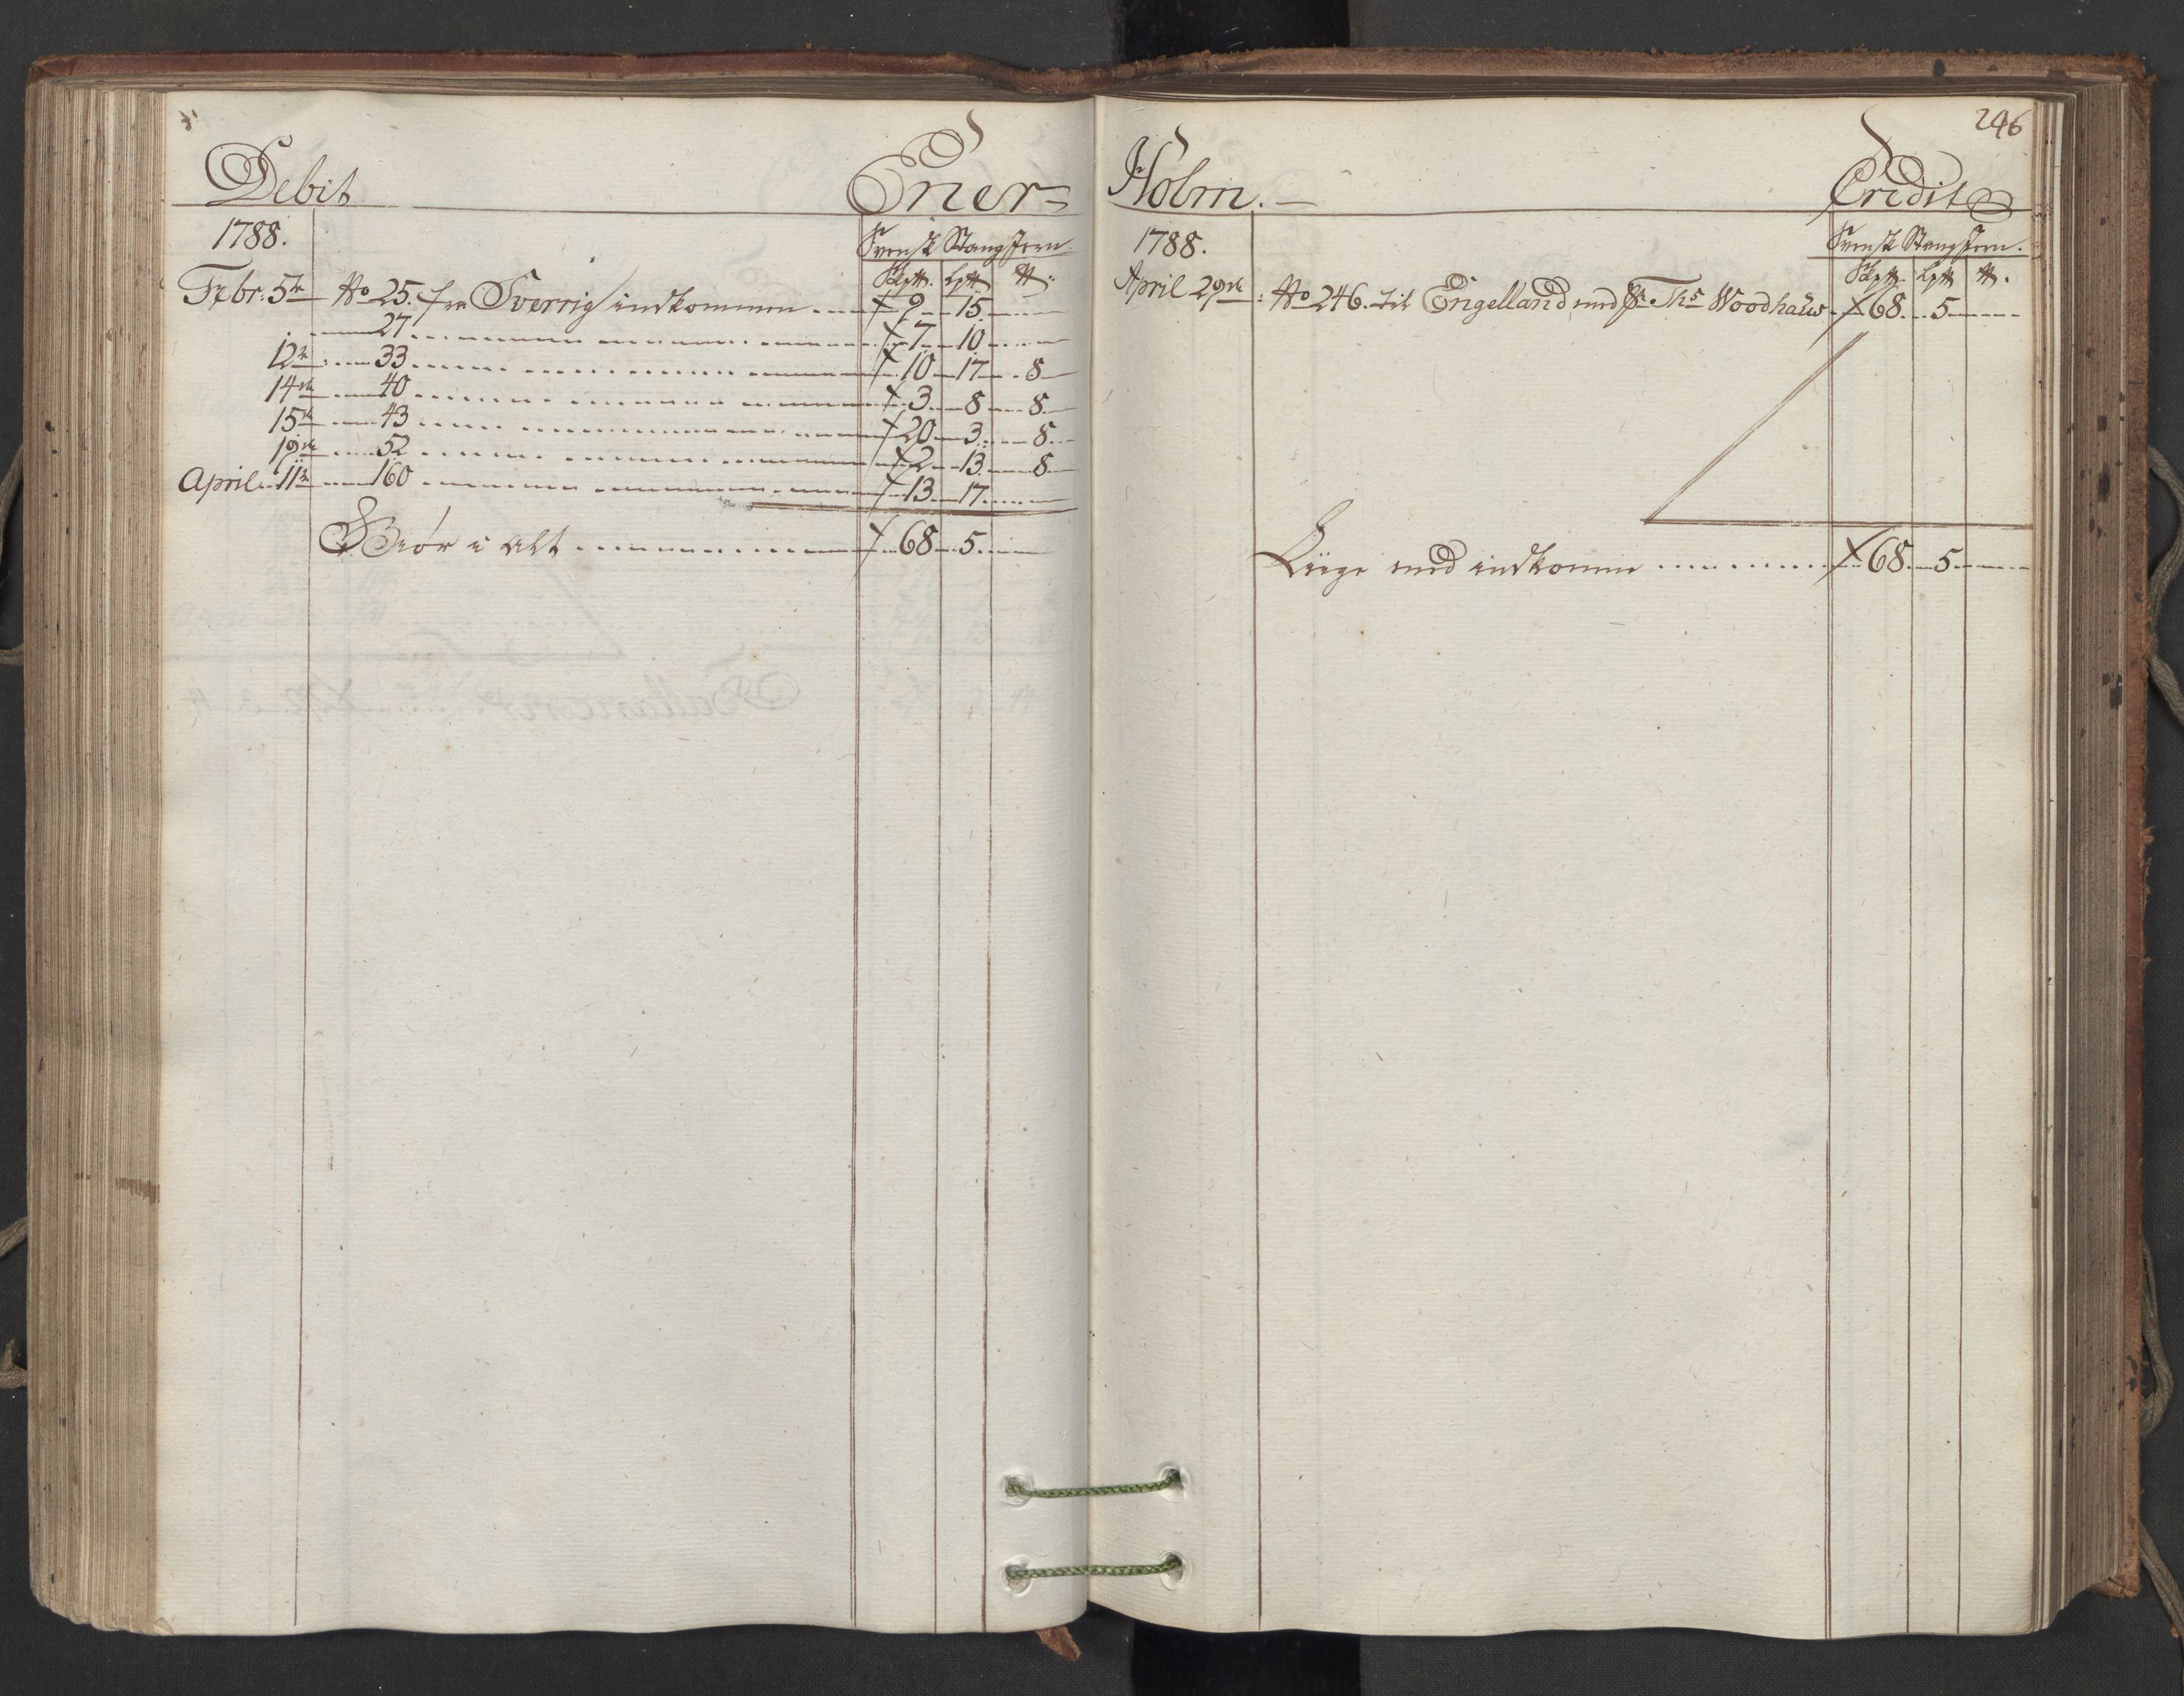 Debit Ener=
1788.
Svensk Stang Jern
Skp℔. Lp℔ ℔:
Febr: 5te No 25. fra Sverrig indkommen 9 15
27 7 10
12te 33 10 17 8
14de 40 3 8 8
15de 43 20 3 8
19de 52 2 13 8
April 11te 160 13 17
Giør i alt 68 5
246
Holm. Credit
1788.
Svensk Stang Jern.
Skp℔. Lp℔ ℔.
April 29de: No 246. til Engelland med Sr. Ths Woodhaus 68 5
Liige med indkomne 68 5